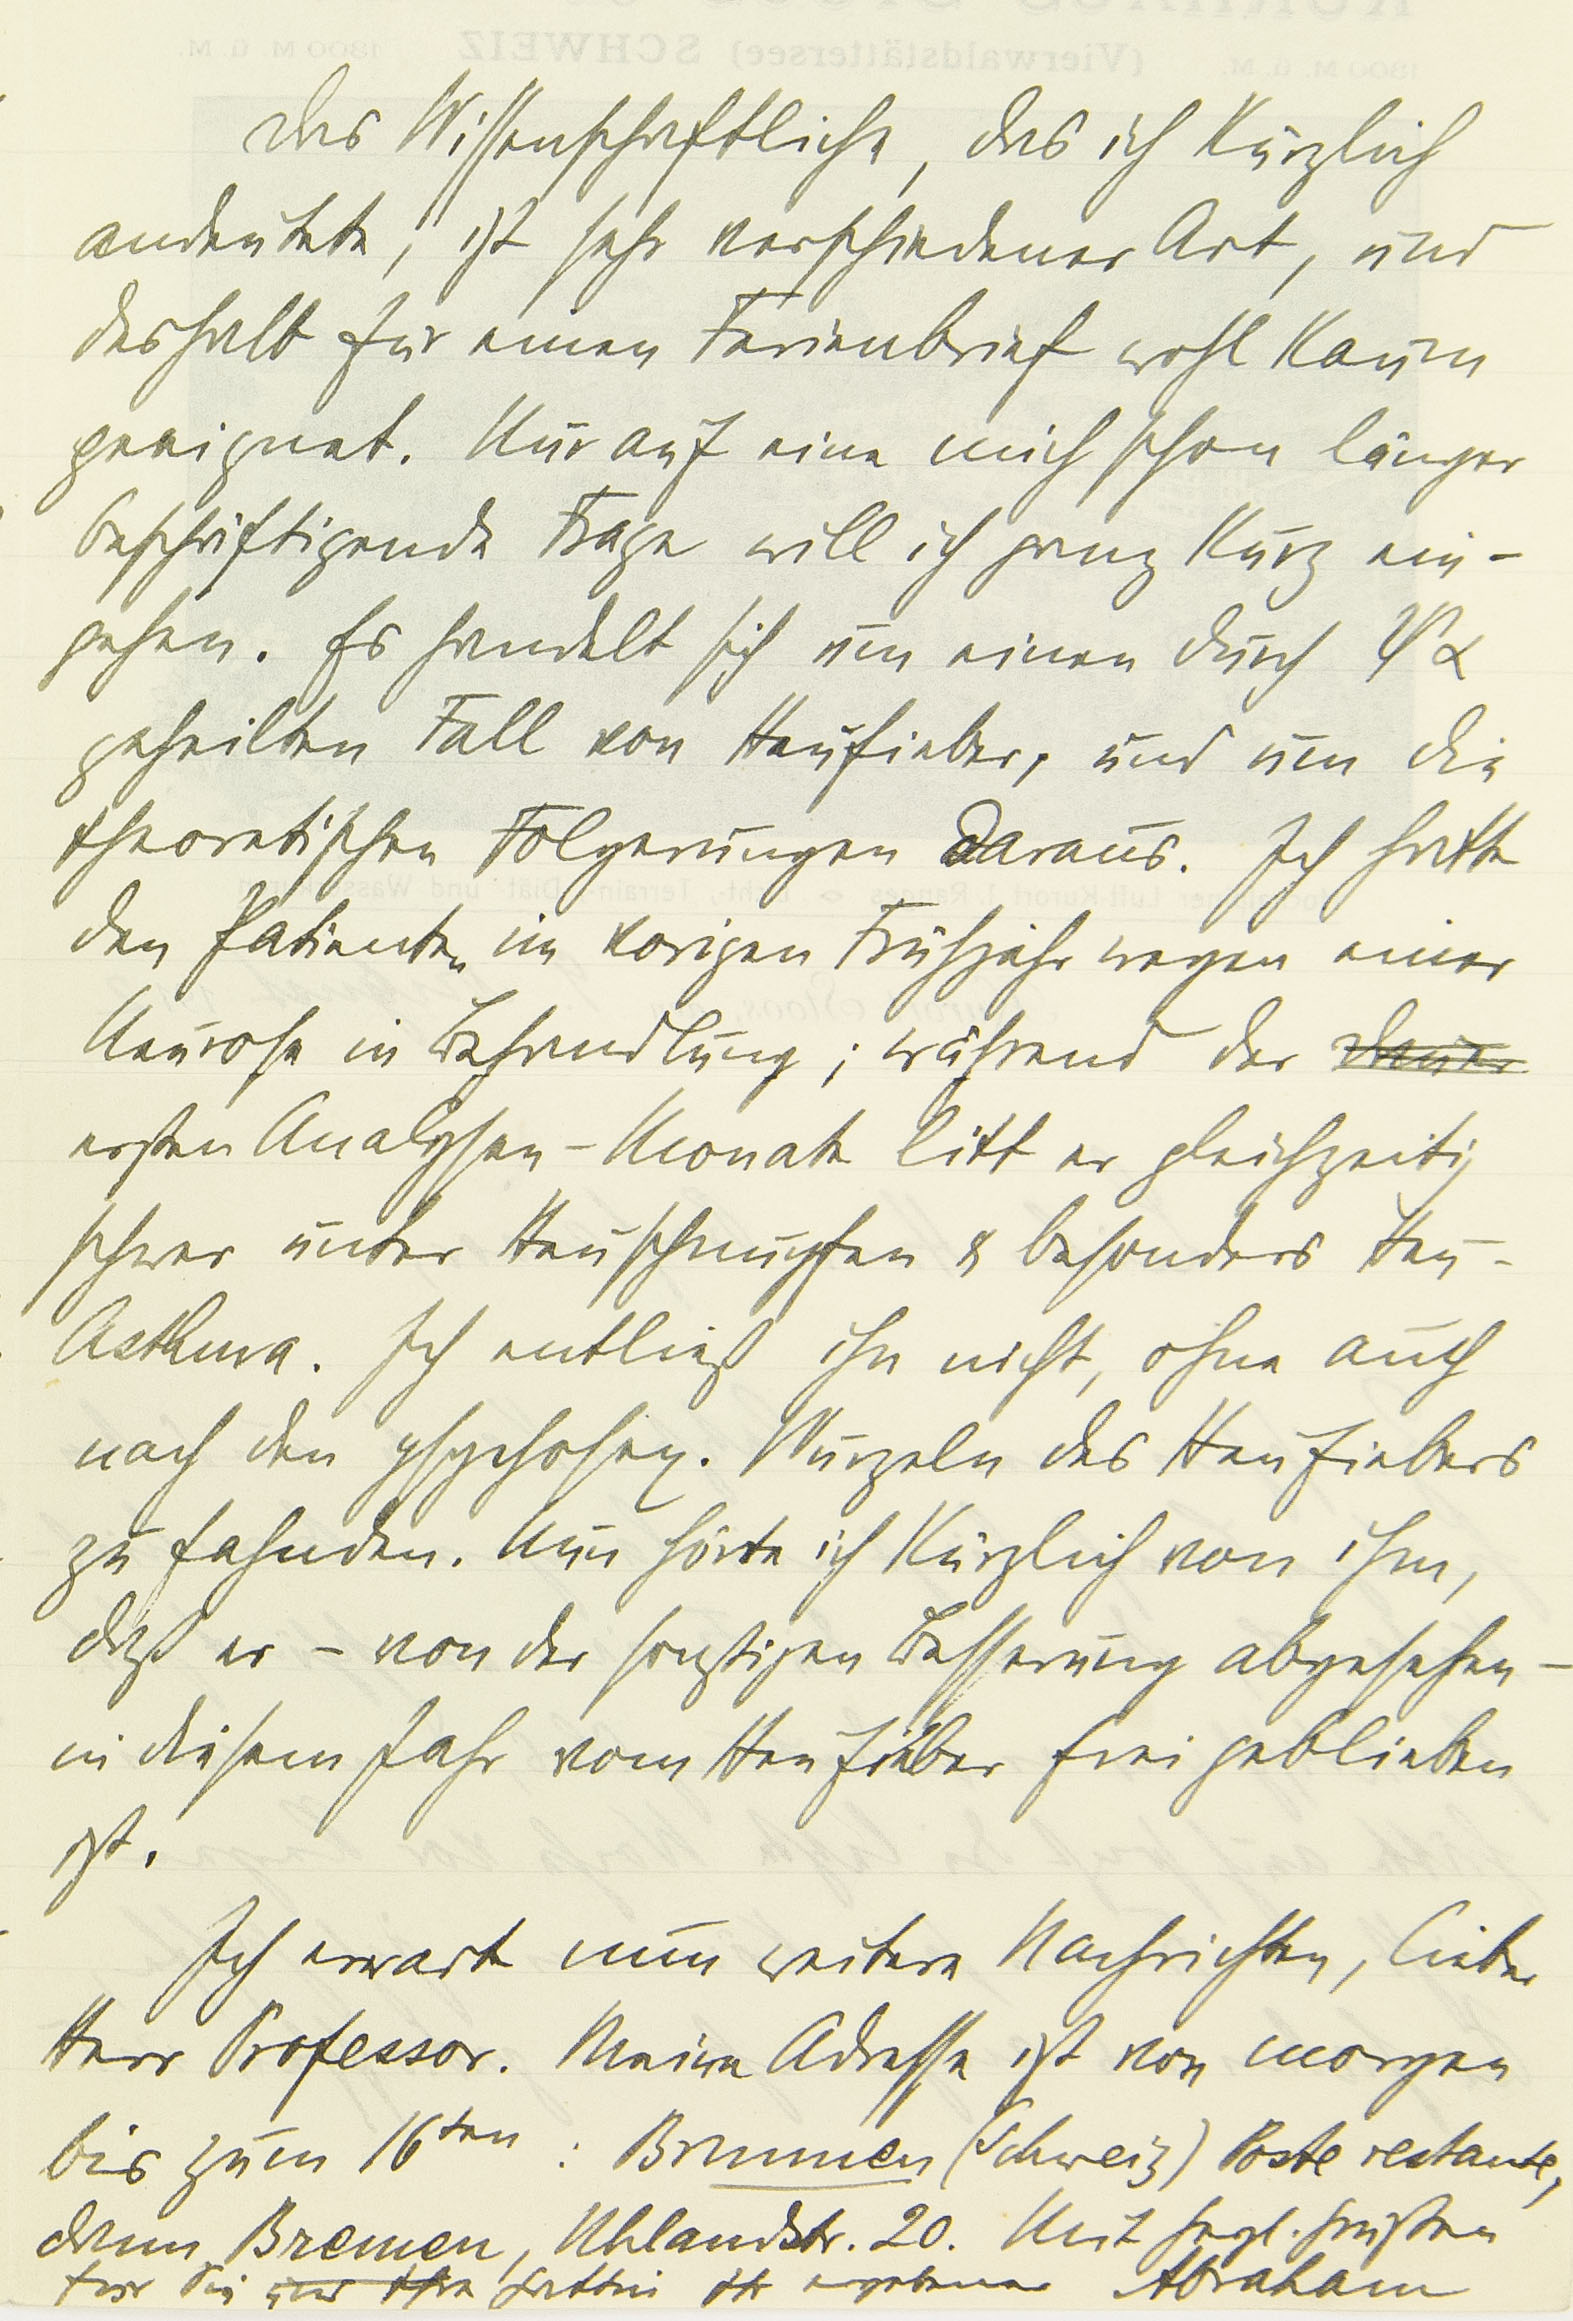 Das Wissenschaftliche, das ich kürzlich
andeutete, ist sehr verschiedener Art, und
deshalb für einen Ferienbrief wohl kaum
geeignet. Nur auf eine mich schon länger
beschäftigende Frage will ich ganz kurz ein-
gehen. Es handelt sich um einen durch Ψα
geheilten Fall von Heufieber, und um die
theoretischen Folgerungen daraus. Ich hatte
den Patienten im vorigen Frühjahr wegen einer
Neurose in Behandlung; während der Dauer
ersten Analysen-Monate litt er gleichzeitig
schwer unter Heuschnupfen & besonders Heu-
Asthma. Ich entließ ihn nicht, ohne auch
nach den psychosex. Wurzeln des Heufiebers
zu fahnden. Nun hörte ich kürzlich von ihm,
daß er – von der sonstigen Besserung abgesehen –
in diesem Jahr vom Heufieber frei geblieben
ist.
Ich erwarte nun weitere Nachrichten, lieber
Herr Professor. Meine Adresse ist von morgen
bis zum 16ten: Brunnen (Schweiz) Poste restante,
dann Bremen, Uhlandstr. 20. Mit herzl. Grüßen
für Sie und Ihre Gattin Ihr ergebener Abraham
(Vierwaldstättersee) SCHWEIZ
1300 M. ü. M.
1300 M. ü. M.